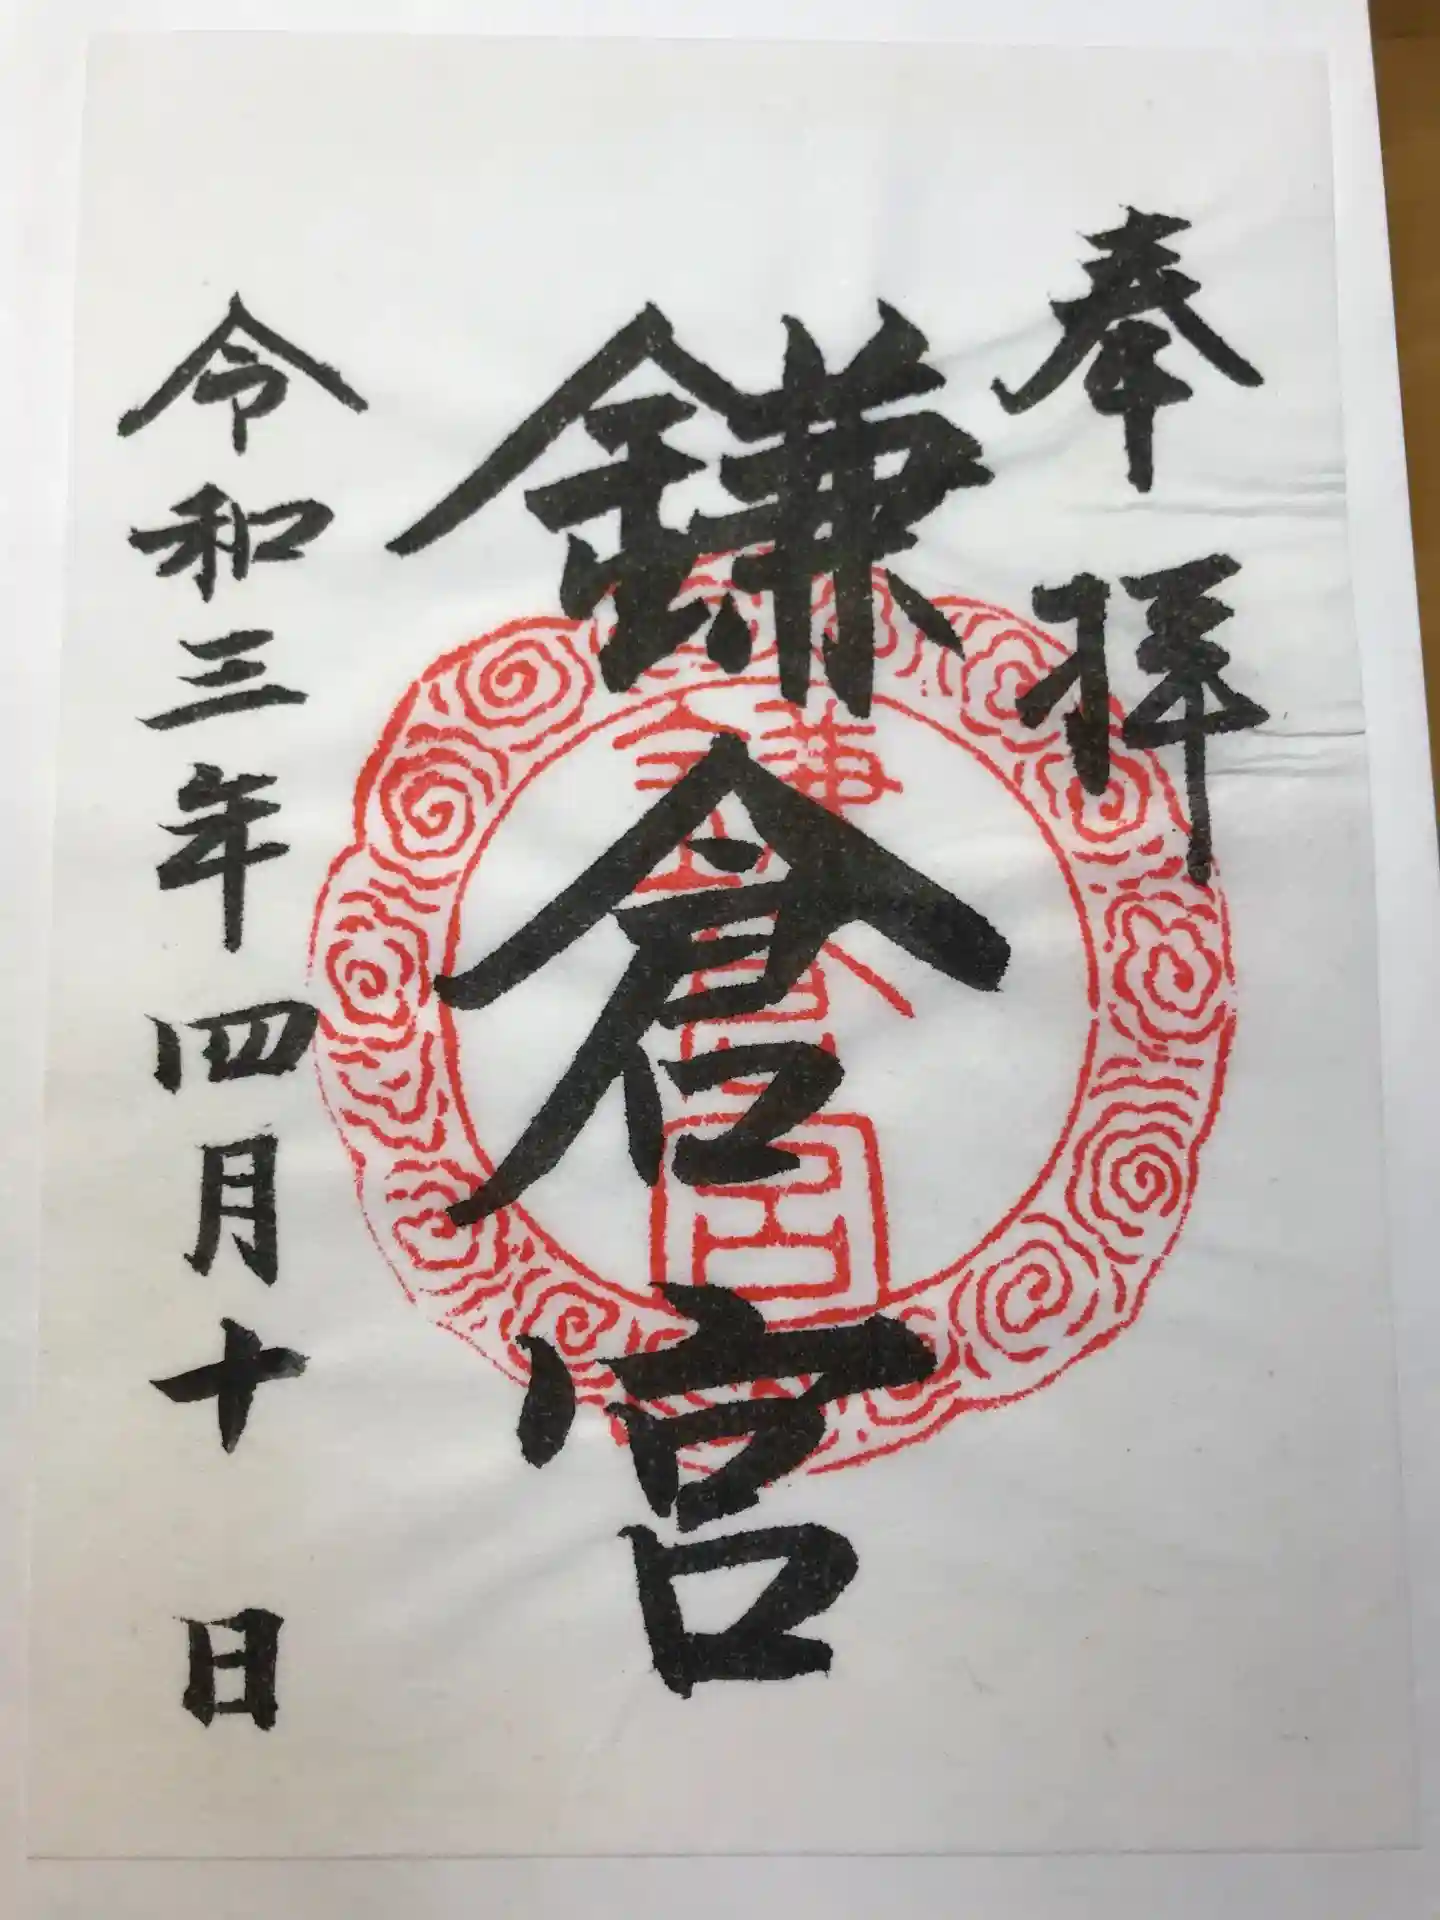 奉拝
鎌倉宮
令和三年四月十日
鎌倉宮